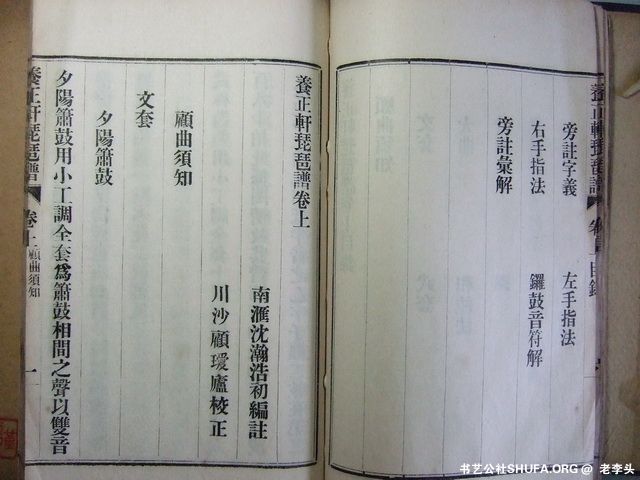 養正軒琵琶譜
旁註字義 左手指法
右手指法 鑼鼓音符解
旁註彙解
養正軒琵琶譜卷上
南滙沈瀚浩初編註
川沙顧瓊廬校正
顧曲須知
文套
夕陽簫鼓
夕陽簫鼓用小工調全套爲簫鼓相間之聲以雙音
養正軒琵琶譜 卷上 顧曲須知 一
书艺公社SHUFA.ORG @ 老李头